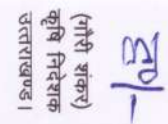 (गौरी शंकर)
कृषि निदेशक
उत्तराखण्ड।